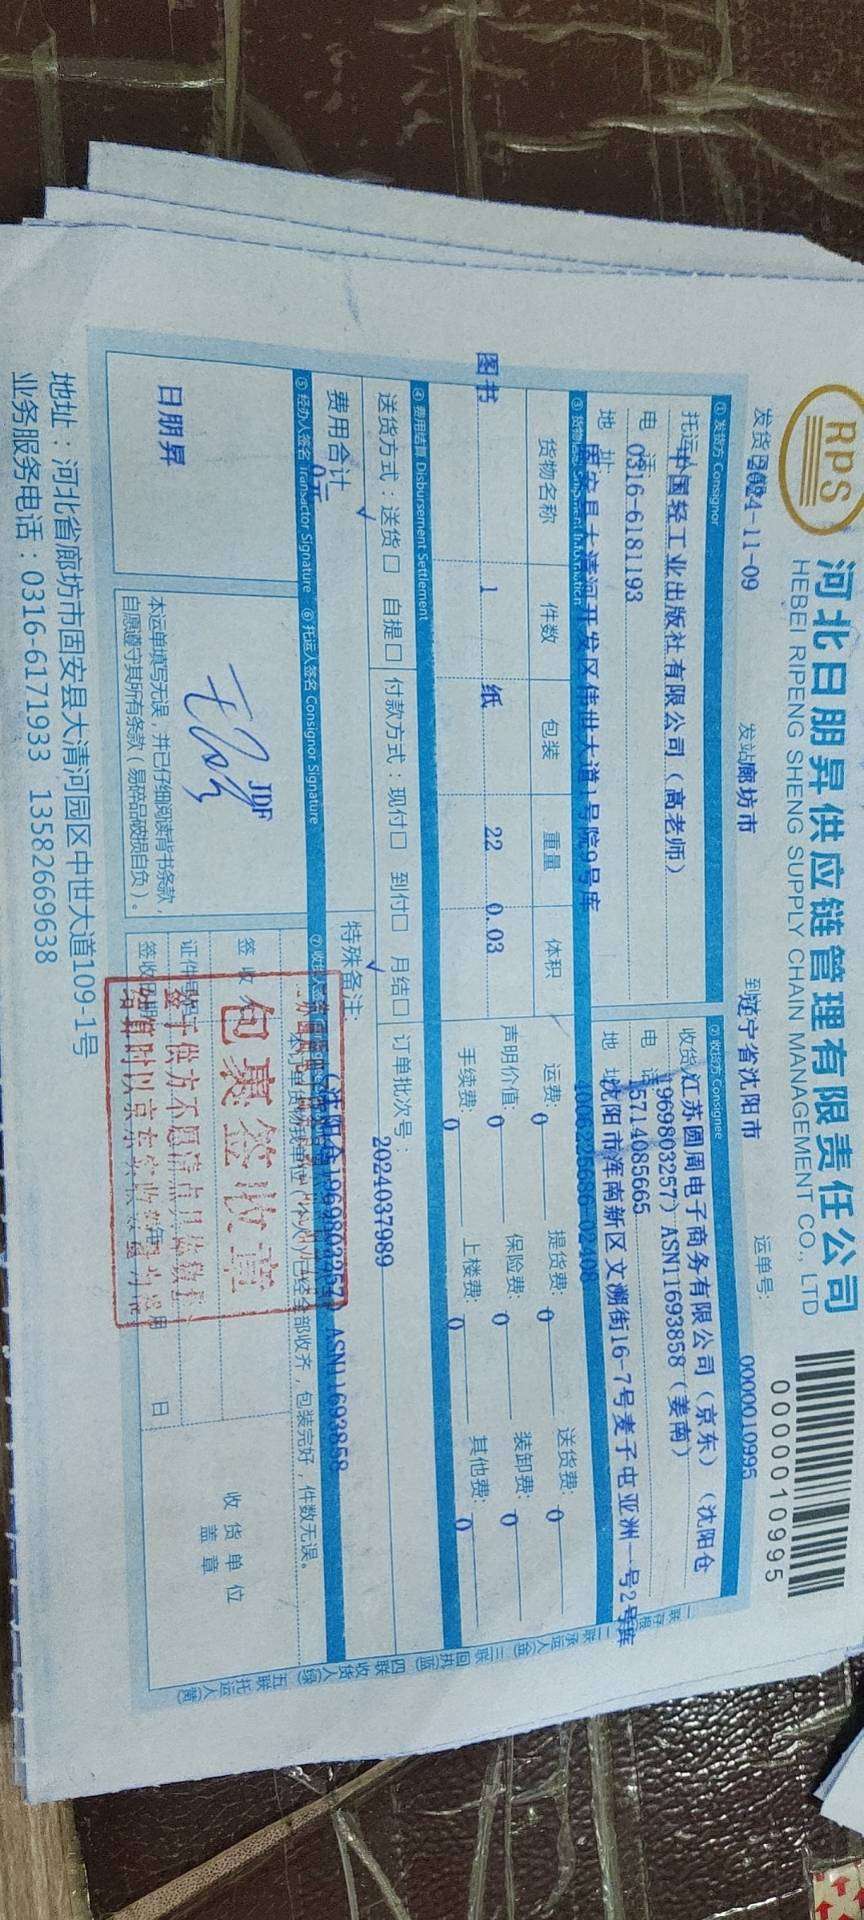 RPS
河北日朋昇供应链管理有限责任公司
HEBEI RIPENG SHENG SUPPLY CHAIN MANAGEMENT CO., LTD
0000010995
发货日期 2024-11-09 发站 廊坊市 到 辽宁省沈阳市 运单号: 0000010995
① 发货方 Consignor
托运 中国轻工业出版社有限公司（高老师）
电 话 0316-6181193
地 址 固安县大清河开发区伟世大道1号院9号库
② 收货方 Consignee
收货 江苏圆周电子商务有限公司（京东）（沈阳仓
1969803257）ASN11693858（姜南）
电 15714085665
地 址 沈阳市浑南新区文溯街16-7号麦子屯亚洲一号2号库
4006225686-02408
③ 货物信息 Shipment Information
货物名称 件数 包装 重量 体积
图书 1 纸 22 0.03
运费: 0 提货费: 0 送货费: 0
声明价值: 0 保险费: 0 装卸费: 0
手续费: 0 上楼费: 0 其他费: 0
④ 费用结算 Disbursement Settlement
送货方式：送货□ 自提□ 付款方式：现付□ 到付□ 月结□ 订单批次号： 2024037989
费用合计 0元
特殊备注： （沈阳仓1969803257）ASN11693858
⑤ 经办人签名 Transactor Signature ⑥ 托运人签名 Consignor Signature
日朋昇
JDF
本运单填写无误，并已仔细阅读背书条款，
自愿遵守其所有条款（易碎品破损自负）。
本订单货物我单位（本人）已经全部收齐，包装完好，件数无误。
签 收 人
证件号码
签收日期
日
收 货 单 位
盖 章
包裹签收章
鉴于供方不愿清点具体数量
一联存根 二联承运人(金) 三联回执(蓝) 四联收货人(绿) 五联托运人(黄)
地址：河北省廊坊市固安县大清河园区中世大道109-1号
业务服务电话：0316-6171933 13582669638